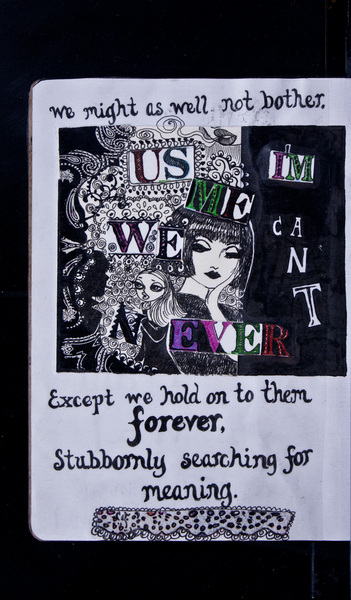 we might as well not bother.
US
I'M
ME
CAN'T
WE
NEVER
Except we hold on to them
forever,
Stubbornly searching for
meaning.